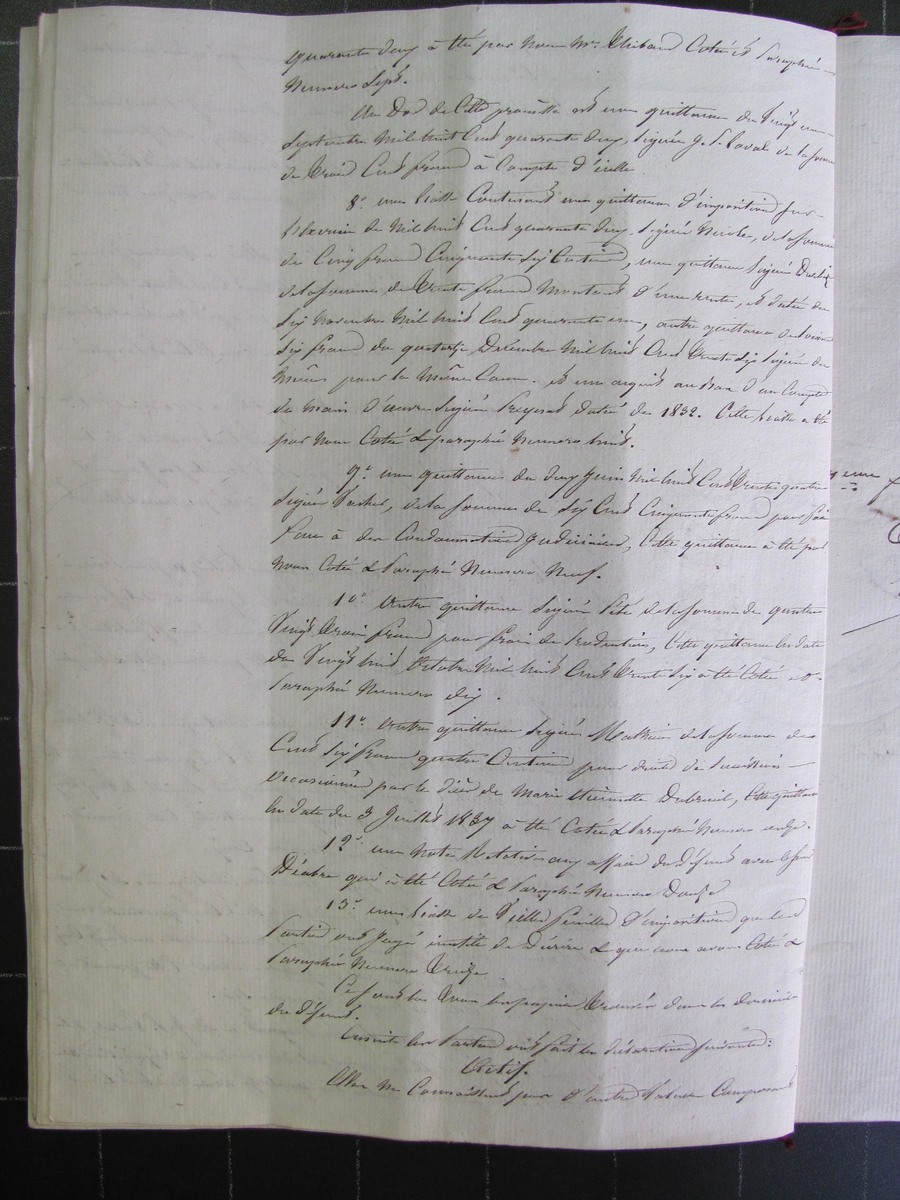 quarante deux a été par nous Mr. Thibaud Coté et Paraphé
Numero Sept.
Au Dos de Cette pièce est une quittance du Vingt un
Septembre Mil huit Cent quarante deux, Signée J. P. Laval de la somme
de Trois Cent francs à Compte d'icelle
8º une liasse Contenant une quittance d'imposition sur
de Mil huit Cent quarante deux Signée de la somme
de Cinq francs Cinquante Six Centimes, une quittance Signée
de la somme de Trente francs Montant d'une rente, et datée du
Six Novembre Mil huit Cent quarante un, autre quittance de
Six francs du quatorze Décembre Mil huit Cent Trente Six Signée du
même pour la Même Cause. et un acquit au bas d'un Compte
de main d'œuvre Signée daté de 1832. Cette liasse a été
par nous Coté & paraphé Numero huit.
9º une quittance du deux Juin Mil huit Cent Trente quatre
Signée de la somme de Six Cent Cinquante francs pour faire
face à des Condamnations Judiciaires, Cette quittance a été par
nous Coté & Paraphé Numero Neuf.
10º Autre quittance Signée de la somme de quatre
Vingt Trois francs pour frais de Cette quittance en date
du Vingt huit Octobre Mil huit Cent Trente Six a été Cotée et
Paraphé Numero dix.
11º Autre quittance Signée Mathieu de la somme de
Cent Six francs quatre Centimes pour droits de succession
occasionné par le décès de Marie Dubreuil, Cette quittance
en date du 3 Juillet 1837 a été Cotée & Paraphé Numero onze.
12º une Note Relative aux affaires du Défunt avec le Sieur
qui a été Coté & Paraphé Numero Douze
13º une liasse de Vieilles feuilles d'imposition que les
Parties ont Jugé inutile de Décrire & que nous avons Coté &
Paraphé Numero Treize
Ce sont les Seuls papiers Trouvés dans le Domicile
du Défunt.
Ensuite les Parties ont fait les déclarations suivantes:
Actif.
Elles ne Connaissent pas d'autres Valeurs Composant